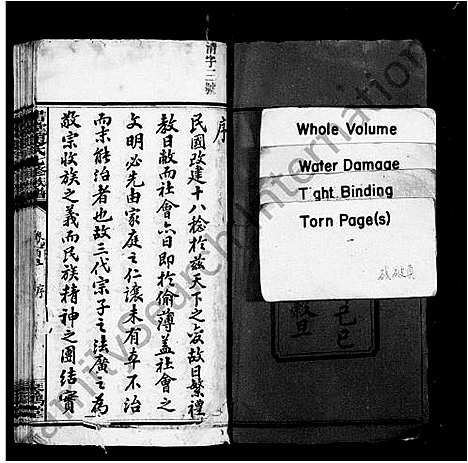 清字三號
序
民國改建十八稔於茲天下之變故日繁禮
教日敝而社會亦日即於偷薄蓋社會之
文明必先由家庭之仁讓未有卒不治
而末能治者也故三代宗子之法廣之為
敬宗收族之義而民族精神之團結實
序
Whole Volume
Water Damage
Tight Binding
Torn Page(s)
己巳
FamilySearch International